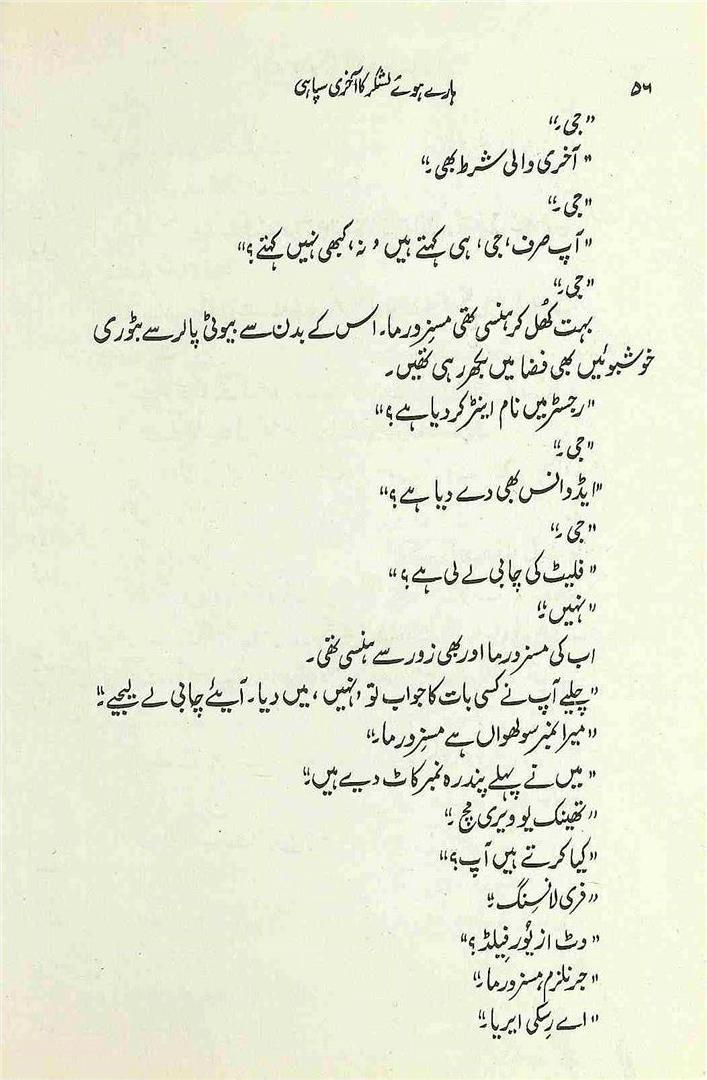 ۵۶ ہارے ہوئے لشکر کا آخری سپاہی
"جی۔"
"آخری والی شرط بھی۔"
"جی۔"
"آپ صرف، جی، ہی کہتے ہیں، نہ، کبھی نہیں کہتے؟"
"جی۔"
بہت کُھل کر ہنسی تھی مسز ورما۔ اس کے بدن سے بیوٹی پالر سے بٹوری
خوشبوئیں بھی فضا میں بکھر رہی تھیں۔
"رجسٹر میں نام اینٹر کر دیا ہے؟"
"جی۔"
"ایڈوانس بھی دے دیا ہے؟"
"جی۔"
"فلیٹ کی چابی لے لی ہے؟"
"نہیں۔"
اب کی مسز ورما اور بھی زور سے ہنسی تھی۔
"چلیے آپ نے کسی بات کا جواب تو، نہیں، میں دیا۔ آیئے چابی لے لیجیے۔"
"میرا نمبر سولھواں ہے مسز ورما۔"
"میں نے پہلے پندرہ نمبر کاٹ دیے ہیں۔"
"تھینک یو ویری مچ۔"
"کیا کرتے ہیں آپ؟"
"فری لانسنگ۔"
"وٹ از یُور فیلڈ؟"
"جرنلزم، مسز ورما۔"
"اے رِسکی ایریا۔"